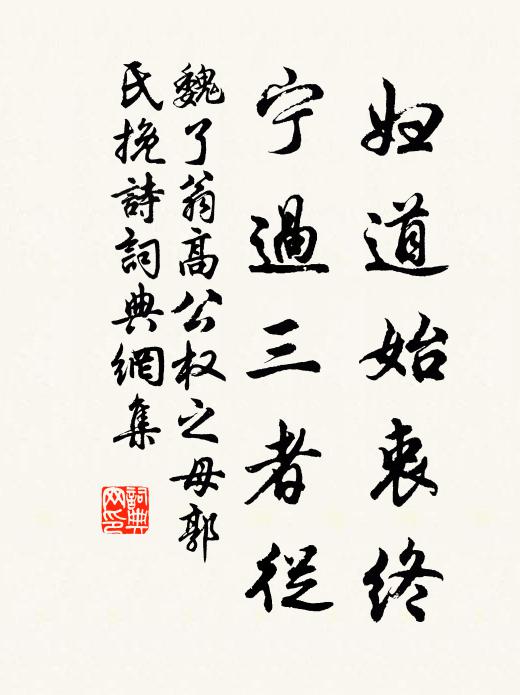 妇道始衷终
宁过三者從
魏了翁高公权之母郭
氏挽詩詞典網集
詞典网印